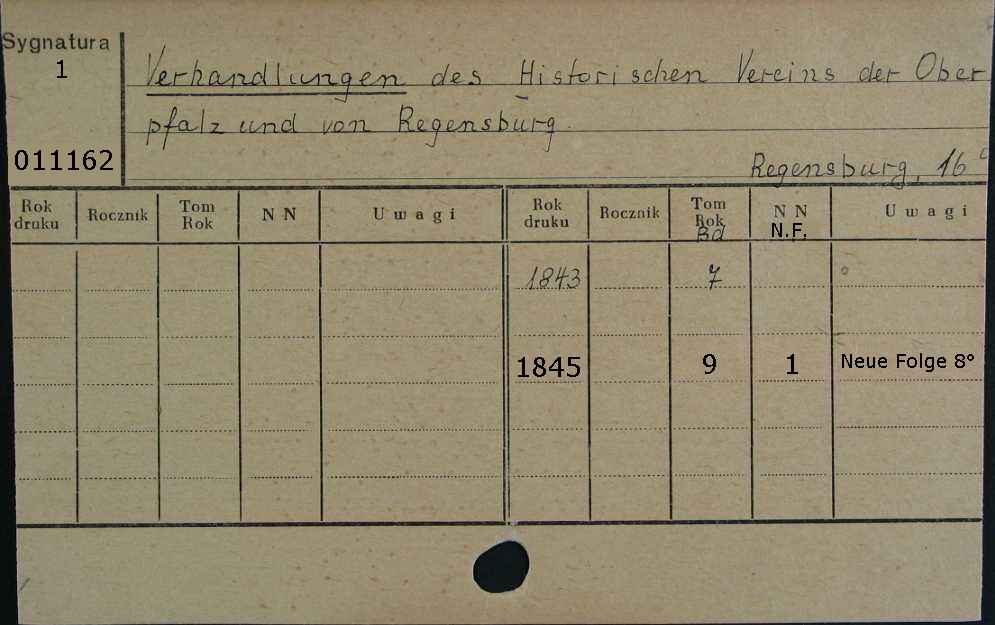 Sygnatura
1
Verhandlungen des Historischen Vereins der Ober
pfalz und von Regensburg.
011162
Regensburg, 16
Rok druku Rocznik Tom Rok N N Uwagi Rok druku Rocznik Tom Rok Bd N N N.F. Uwagi
1843 7 °
1845 9 1 Neue Folge 8°